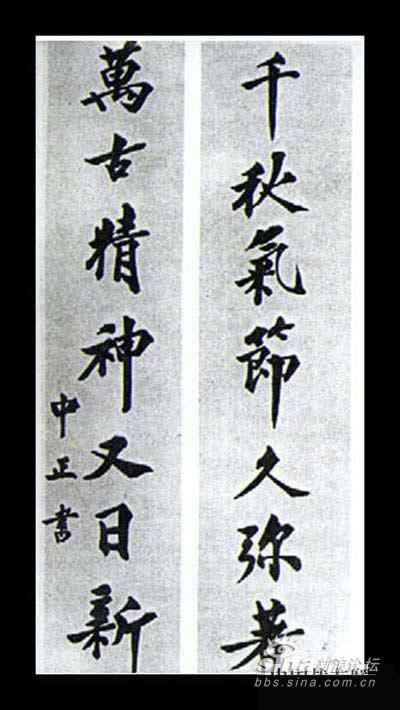 千秋氣節久弥著
萬古精神又日新
中正書
sina 新浪论坛
bbs.sina.com.cn